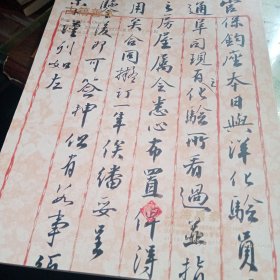 宫保鈞座本日與洋化驗員
通阜同現有之化驗所看過並指
主房屋屬令悉心布置俾得
用矣合同擬訂一年俟繙妥呈
鑒後即可簽押但有於事須
謹列如左